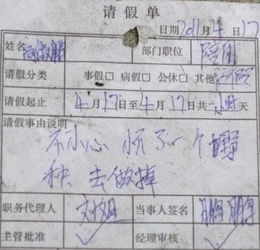 请假单
日期2011年4月17
姓名 部门职位
请假分类 事假□ 病假□ 公休□ 其他
请假起止 4月17日至4月17日共一天
请假事由说明
不小心 怀了一个野
种 去做掉
职务代理人 当事人签名
主管批准 ✓ 经理审核 ✓